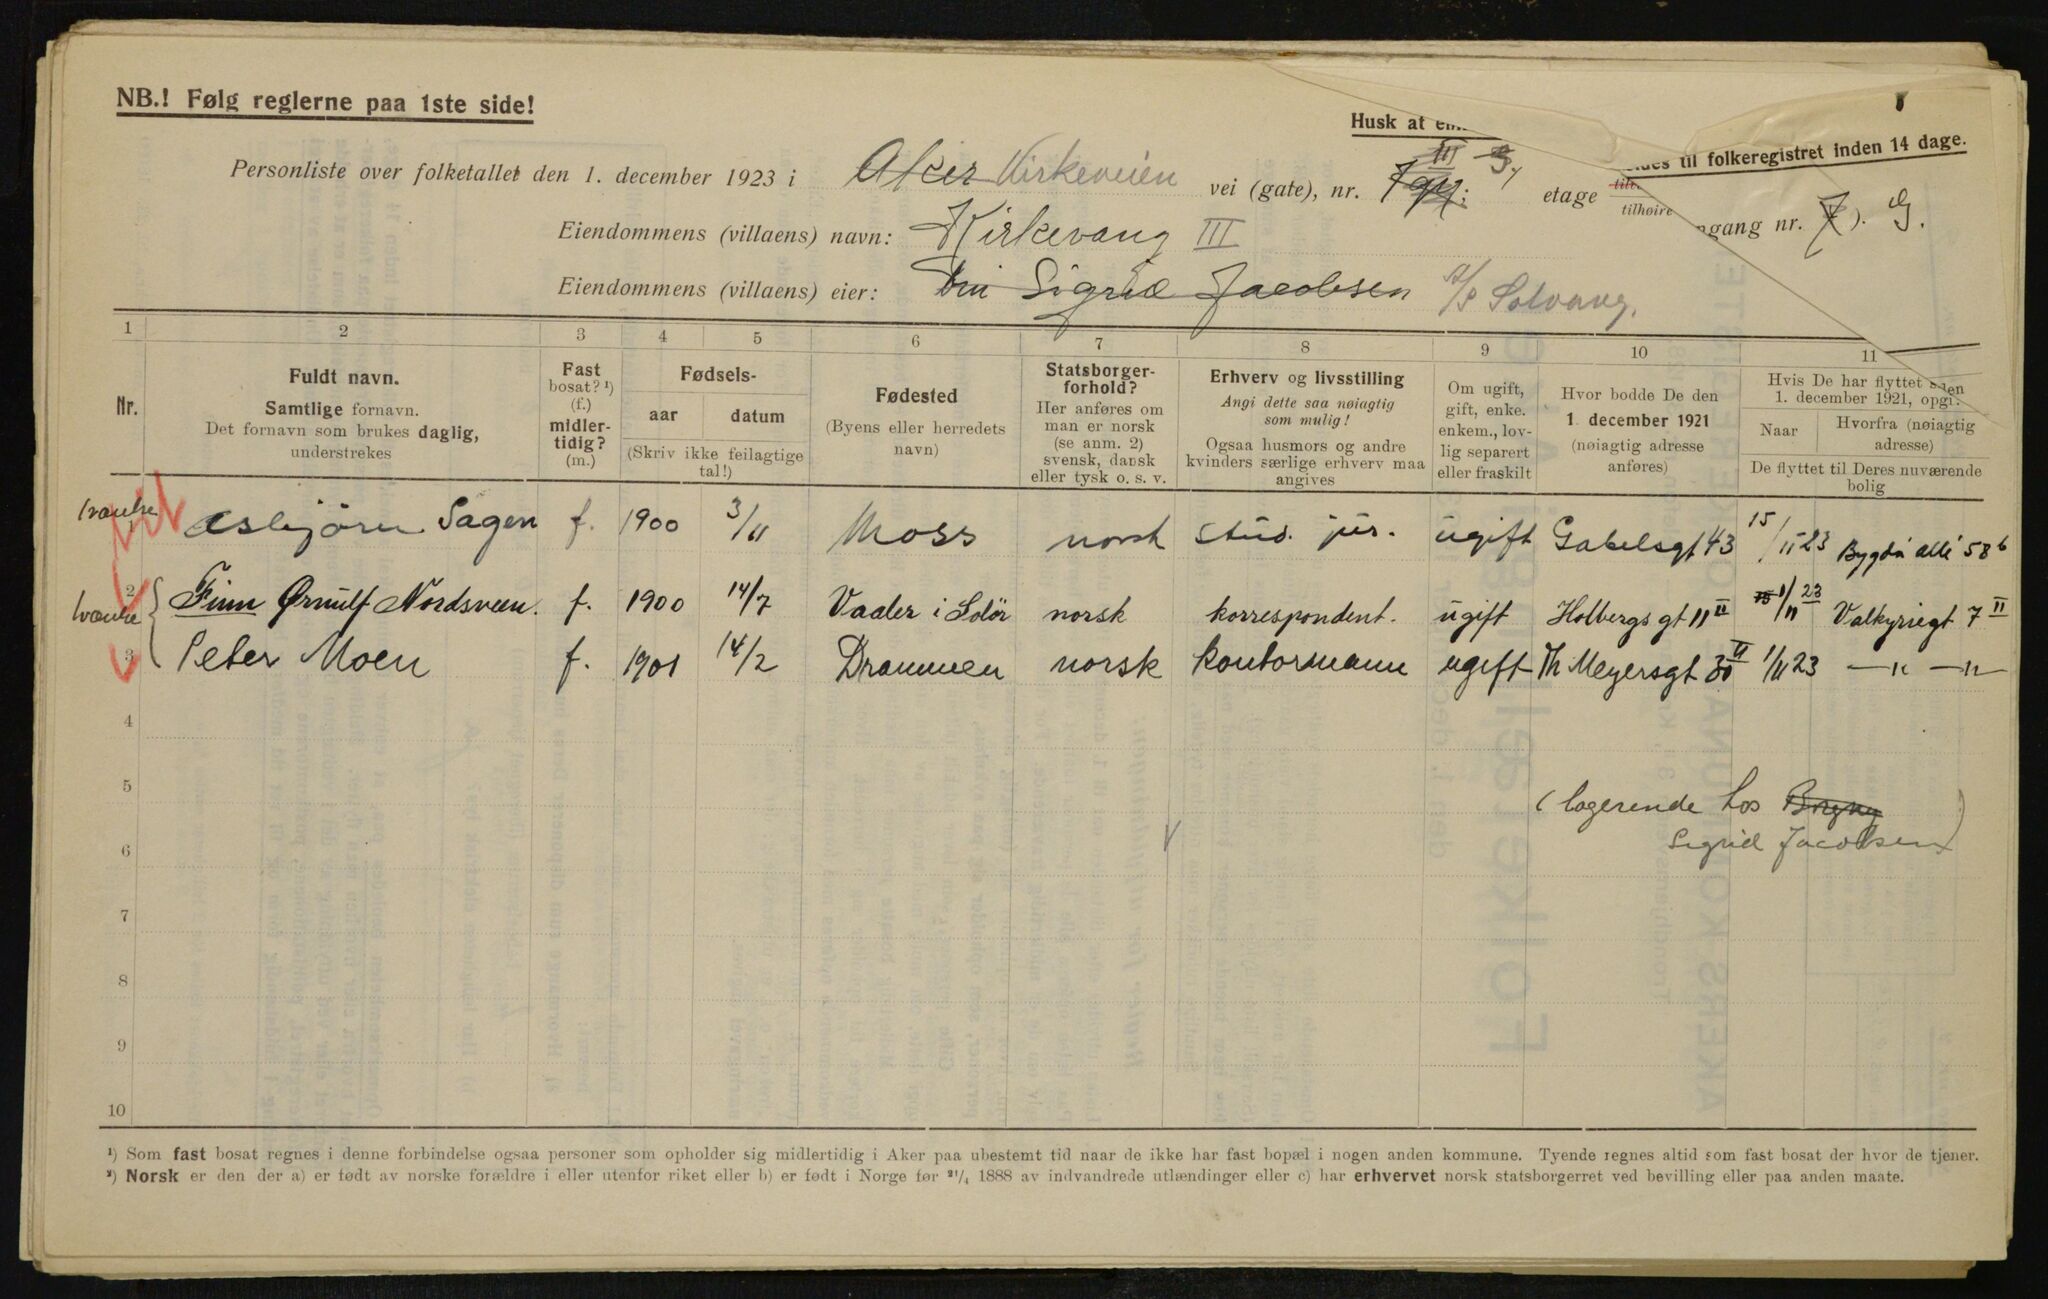 NB.! Følg reglerne paa 1ste side!
Husk at
des til folkeregistret inden 14 dage.
Personliste over folketallet den 1. december 1923 i Aker Kirkeveien vei (gate), nr. III etage
tilhøire
ngang nr. 7). G.
Eiendommens (villaens) navn: Kirkevang III
Eiendommens (villaens) eier: Sigrid Jacobsen A/S Solvang.
1 2 3 4 5 6 7 8 9 10 11
Nr.
Fuldt navn.
Samtlige fornavn.
Det fornavn som brukes daglig,
understrekes
Fast
bosat? ¹)
(f.)
midler-
tidig?
(m.)
Fødsels-
aar datum
(Skriv ikke feilagtige
tal!)
Fødested
(Byens eller herredets
navn)
Statsborger-
forhold?
Her anføres om
man er norsk
(se anm. 2)
svensk, dansk
eller tysk o. s. v.
Erhverv og livsstilling
Angi dette saa nøiagtig
som mulig!
Ogsaa husmors og andre
kvinders særlige erhverv maa
angives
Om ugift,
gift, enke.
enkem., lov-
lig separert
eller fraskilt
Hvor bodde De den
1. december 1921
(nøiagtig adresse
anføres)
Hvis De har flyttet siden
1. december 1921, opgi:
Naar Hvorfra (nøiagtig
adresse)
De flyttet til Deres nuværende
bolig
1 værelse Asbjørn Sagen f. 1900 3/11 Moss norsk stud. jur. ugift Gabelsgt 43 15/11 23 Bygdø allé 58 b
2 Finn Ørnulf Nordsveen. f. 1900 14/7 Vaaler i Solør norsk korrespondent. ugift Holbergs gt 11 II 1/11 23 Valkyriegt 7 II
1 værelse
3 Peter Moen f. 1901 14/2 Drammen norsk kontormann ugift Th Meyersgt 30 II 1/11 23 — " — " —
4
5
(logerende hos Borgny
6
Sigrid Jacobsen)
7
8
9
10
¹) Som fast bosat regnes i denne forbindelse ogsaa personer som opholder sig midlertidig i Aker paa ubestemt tid naar de ikke har fast bopæl i nogen anden kommune. Tyende regnes altid som fast bosat der hvor de tjener.
²) Norsk er den der a) er født av norske forældre i eller utenfor riket eller b) er født i Norge før ²¹/₄ 1888 av indvandrede utlændinger eller c) har erhvervet norsk statsborgerret ved bevilling eller paa anden maate.